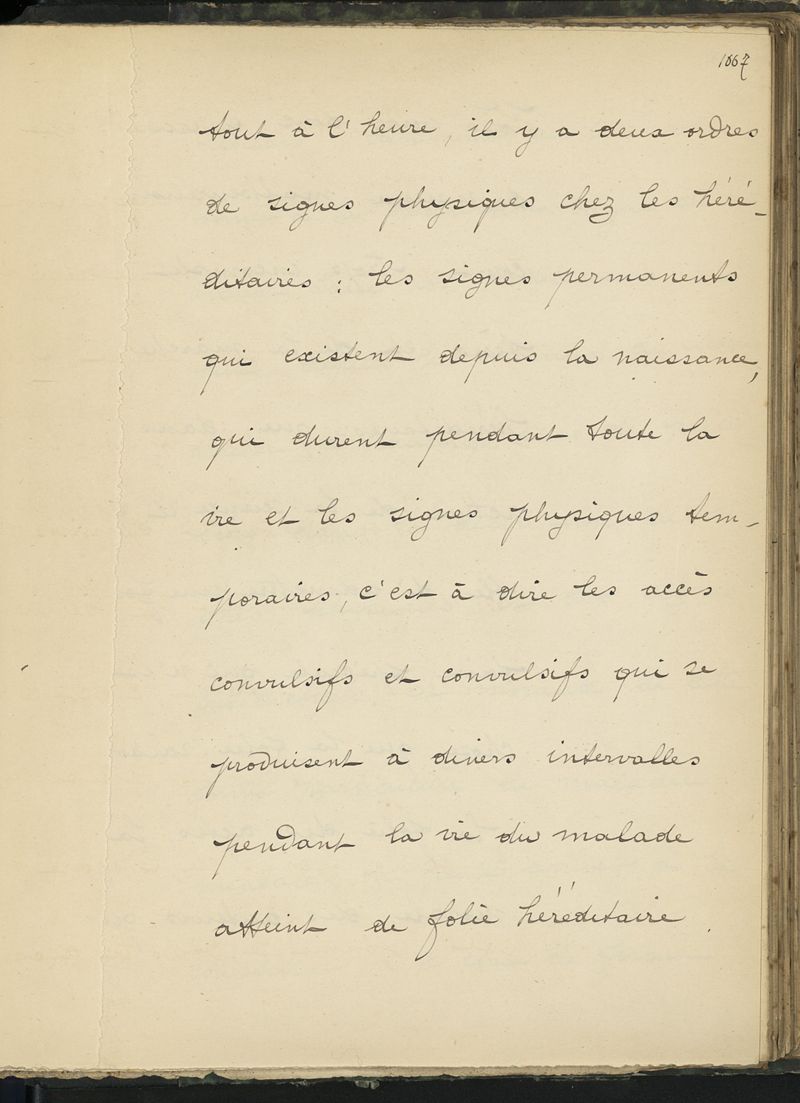 1667
tout à l'heure, il y a deux ordres
de signes physiques chez les héré-
ditaires : les signes permanents
qui existent depuis la naissance,
qui durent pendant toute la
vie et les signes physiques tem-
poraires, c'est à dire les accès
convulsifs et convulsifs qui se
produisent à divers intervalles
pendant la vie du malade
atteint de folie héréditaire.